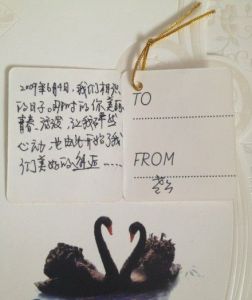 2009年6月4日，我们相识
的日子。那时的你美丽
青春、活泼，让我怦然
心动，也由此开始了我
们美好的邂逅……
TO
FROM